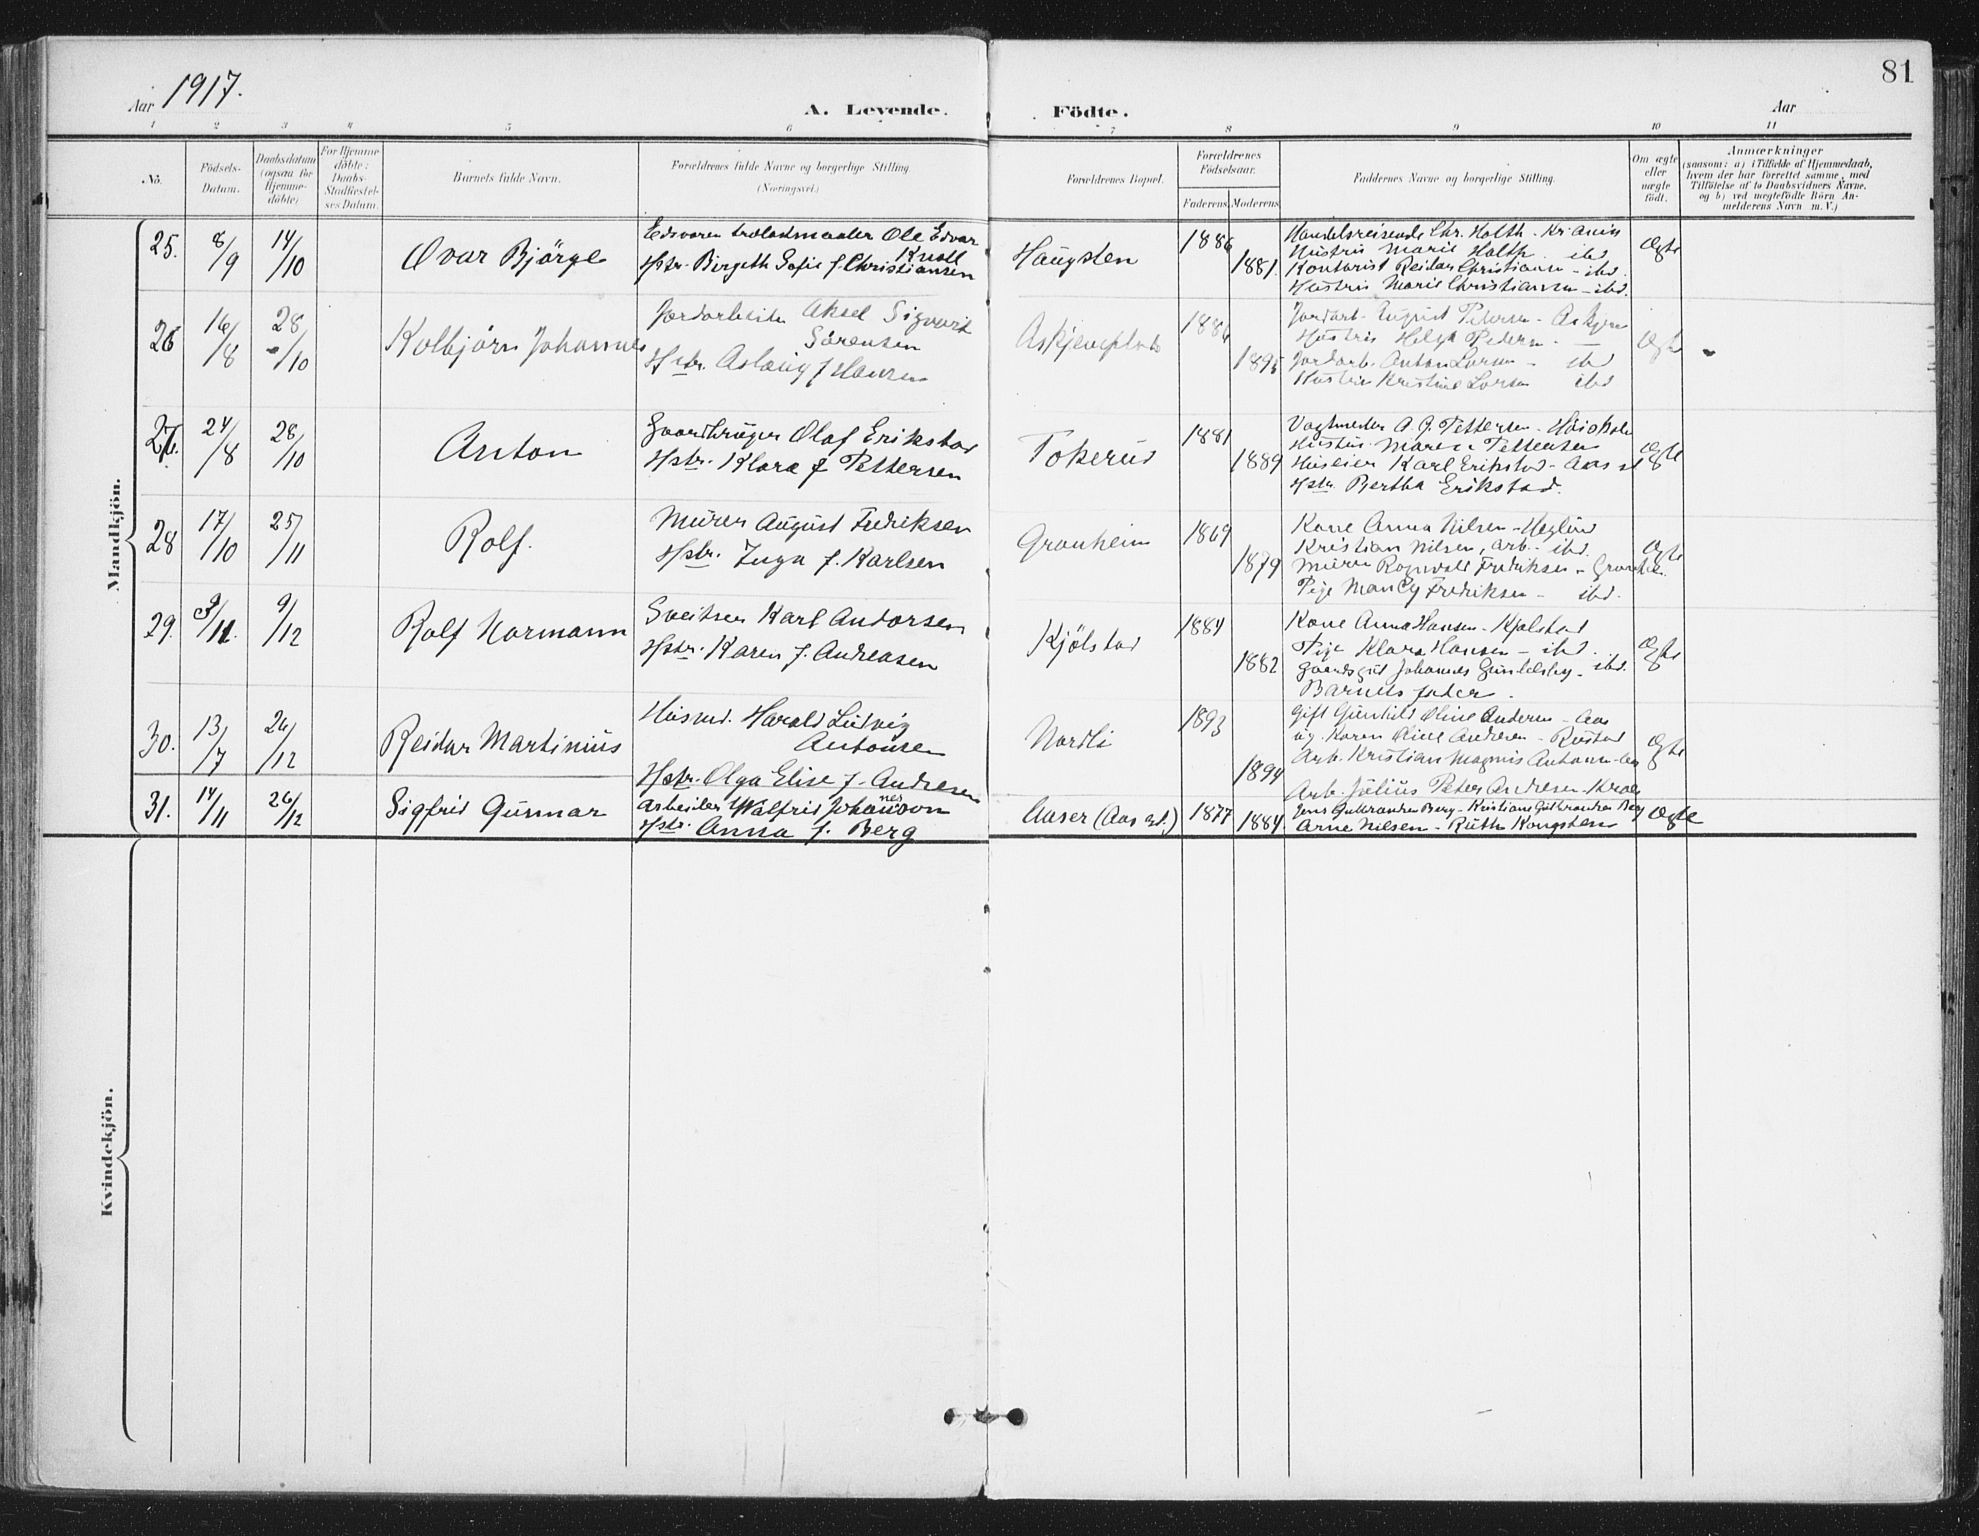 Aar 1917.
A. Levende. Födte.
Aar
81
1 2 3 4 5 6 7 8 9 10 11
No.
Födsels-Datum.
Daabsdatum (ogsaa for Hjemme-döbte)
For Hjemme-döbte: Daabs-Stadfæstel-ses Datum.
Barnets fulde Navn.
Forældrenes fulde Navne og borgerlige Stilling. (Næringsvei.)
Forældrenes Bopæl.
Forældrenes Födselsaar.
Faderens Moderens
Faddernes Navne og borgerlige Stilling.
Om ægte eller uægte födt.
Anmærkninger
(saasom: a) i Tilfælde af Hjemmedaab,
hvem der har forrettet samme, med
Tilföielse af to Daabsvidners Navne.
og b) ved uægtefödte Börn An-
melderens Navn m. V.)
Mandkjön.
25. 8/9 14/10 Øvar Bjørge
Ole Edvar Knoll
Hstr. Birgith Sofie f. Christiansen
Haugsten 1886 1881.
Handelsreisende Chr. Holth - Kr.ania
Hustru Marie Holth ibd
Kontorist Reidar Christiansen - ibd.
Hustru Marie Christiansen - ibd.
Ægte
26 16/8 28/10 Kolbjørn Johannes
Jordarbeider Aksel Sigvart
Sörensen
Hstr. Aslaug f Hansen
1886 1895
Jordarb. August Petersen - Askjem
Hustru Helga Petersen -
Jordarb. Anton Larsen - ibd
Hustru Kristine Larsen ibd
Ægte
27. 24/8 28/10 Anton
Gaardbruger Olaf Erikstad
Hstr. Klara f Pettersen
Tokerud 1881 1889
Vagtmester A. G. Pettersen
Hustru Maren Pettersen
Huseier Karl Erikstad - Aas st
Hstr Bertha Erikstad.
Ægte
28 17/10 25/11 Rolf.
Murer August Fredriksen
Hstr. Inga f. Karlsen
Granheim 1869 1879
Kone Anna Nilsen
Kristian Nilsen, arb. ibd.
Murer Ragnvald Fredriksen - Granheim
Pige Mancy Fredriksen - ibd.
Ægte
29. 3/11. 9/12 Rolf Normann
Sveitser Karl Andersen
Hstr. Karen f. Andreasen
Kjølstad 1884 1882
Kone Anna Hansen - Kjølstad
Pige Klara Hansen - ibd.
Gaardsgut Johannes - ibd.
Barnets fader.
Ægte
30. 13/7 26/12 Reidar Martinius
Husmd. Harald Ludvig
Antonsen
Hstr. Olga Elise f. Andresen
Nordli 1893 1894
Gift Gunhild Oline Andersen - Aas
ug. Karen Oline Andresen - Rustad
Arb. Kristian Magnus Antonsen - Aas
Arb. Julius Peter Andresen
Ægte
31. 14/11 26/12 Sigfrid Gunnar
Arbeider Walfrid Johannesson
Hstr. Anna f. Berg
Aaser (Aas st.) 1877 1884
Jens Gulbrandsen Berg - Kristiane Gulbrandsen Berg
Arne Nilsen - Ruth Kongsten
Ægte
Kvindekjön.